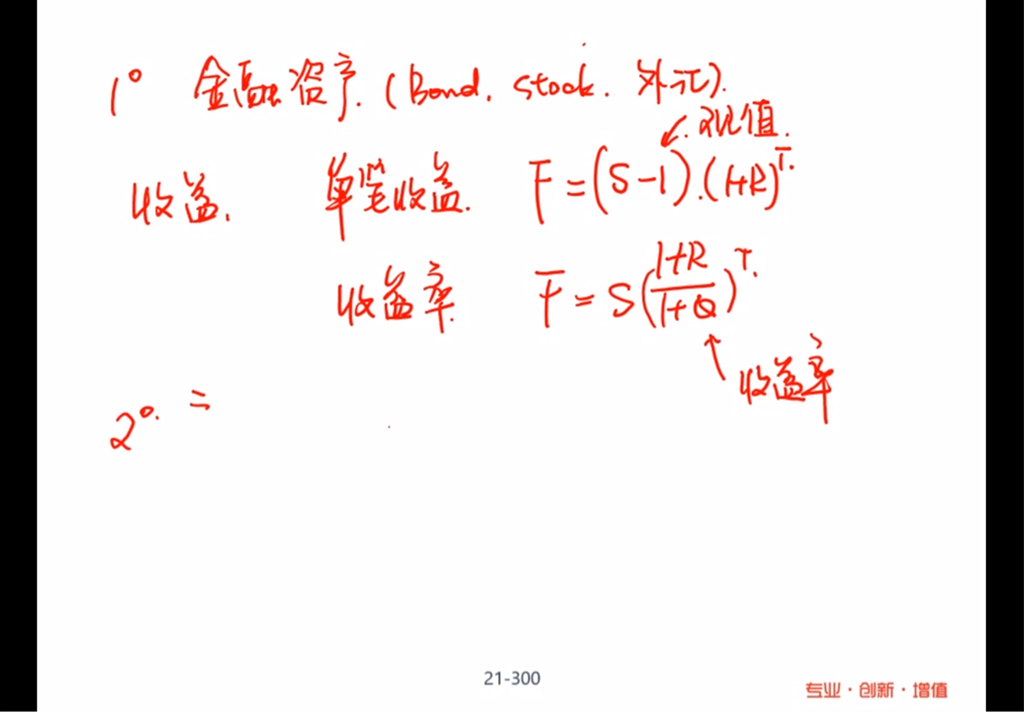 1° 金融资产.(Bond. stock. 外汇).
现值.
收益. 单笔收益. F=(S-I).(1+R)^T.
收益率. F=S(\frac{1+R}{1+Q})^T.
收益率
2°. =
21-300
专业·创新·增值